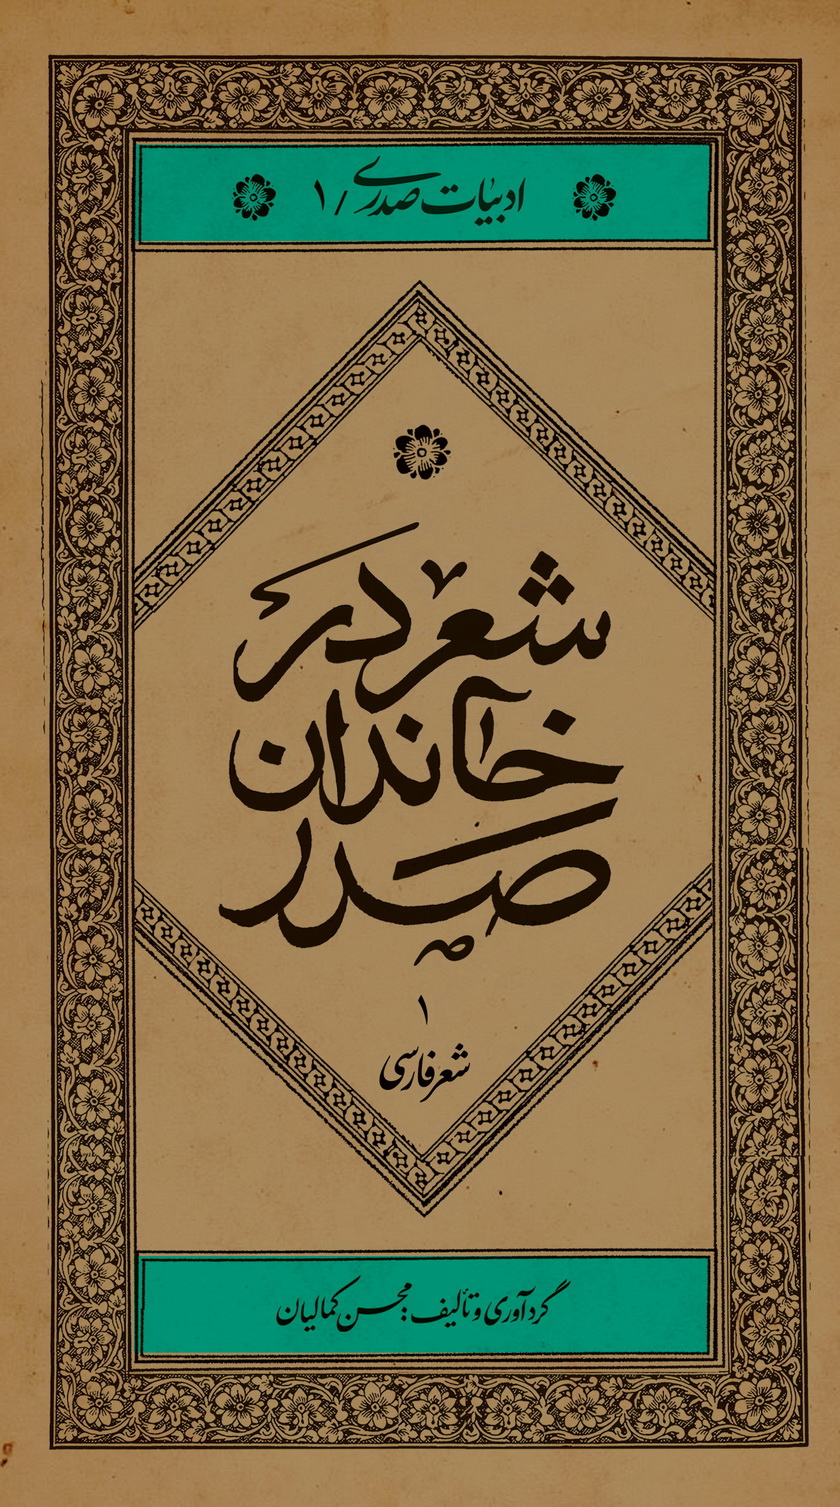 ادبیات صدری / ۱
شعر در
خاندان
صدر
۱
شعر فارسی
گردآوری و تألیف: محسن کمالیان